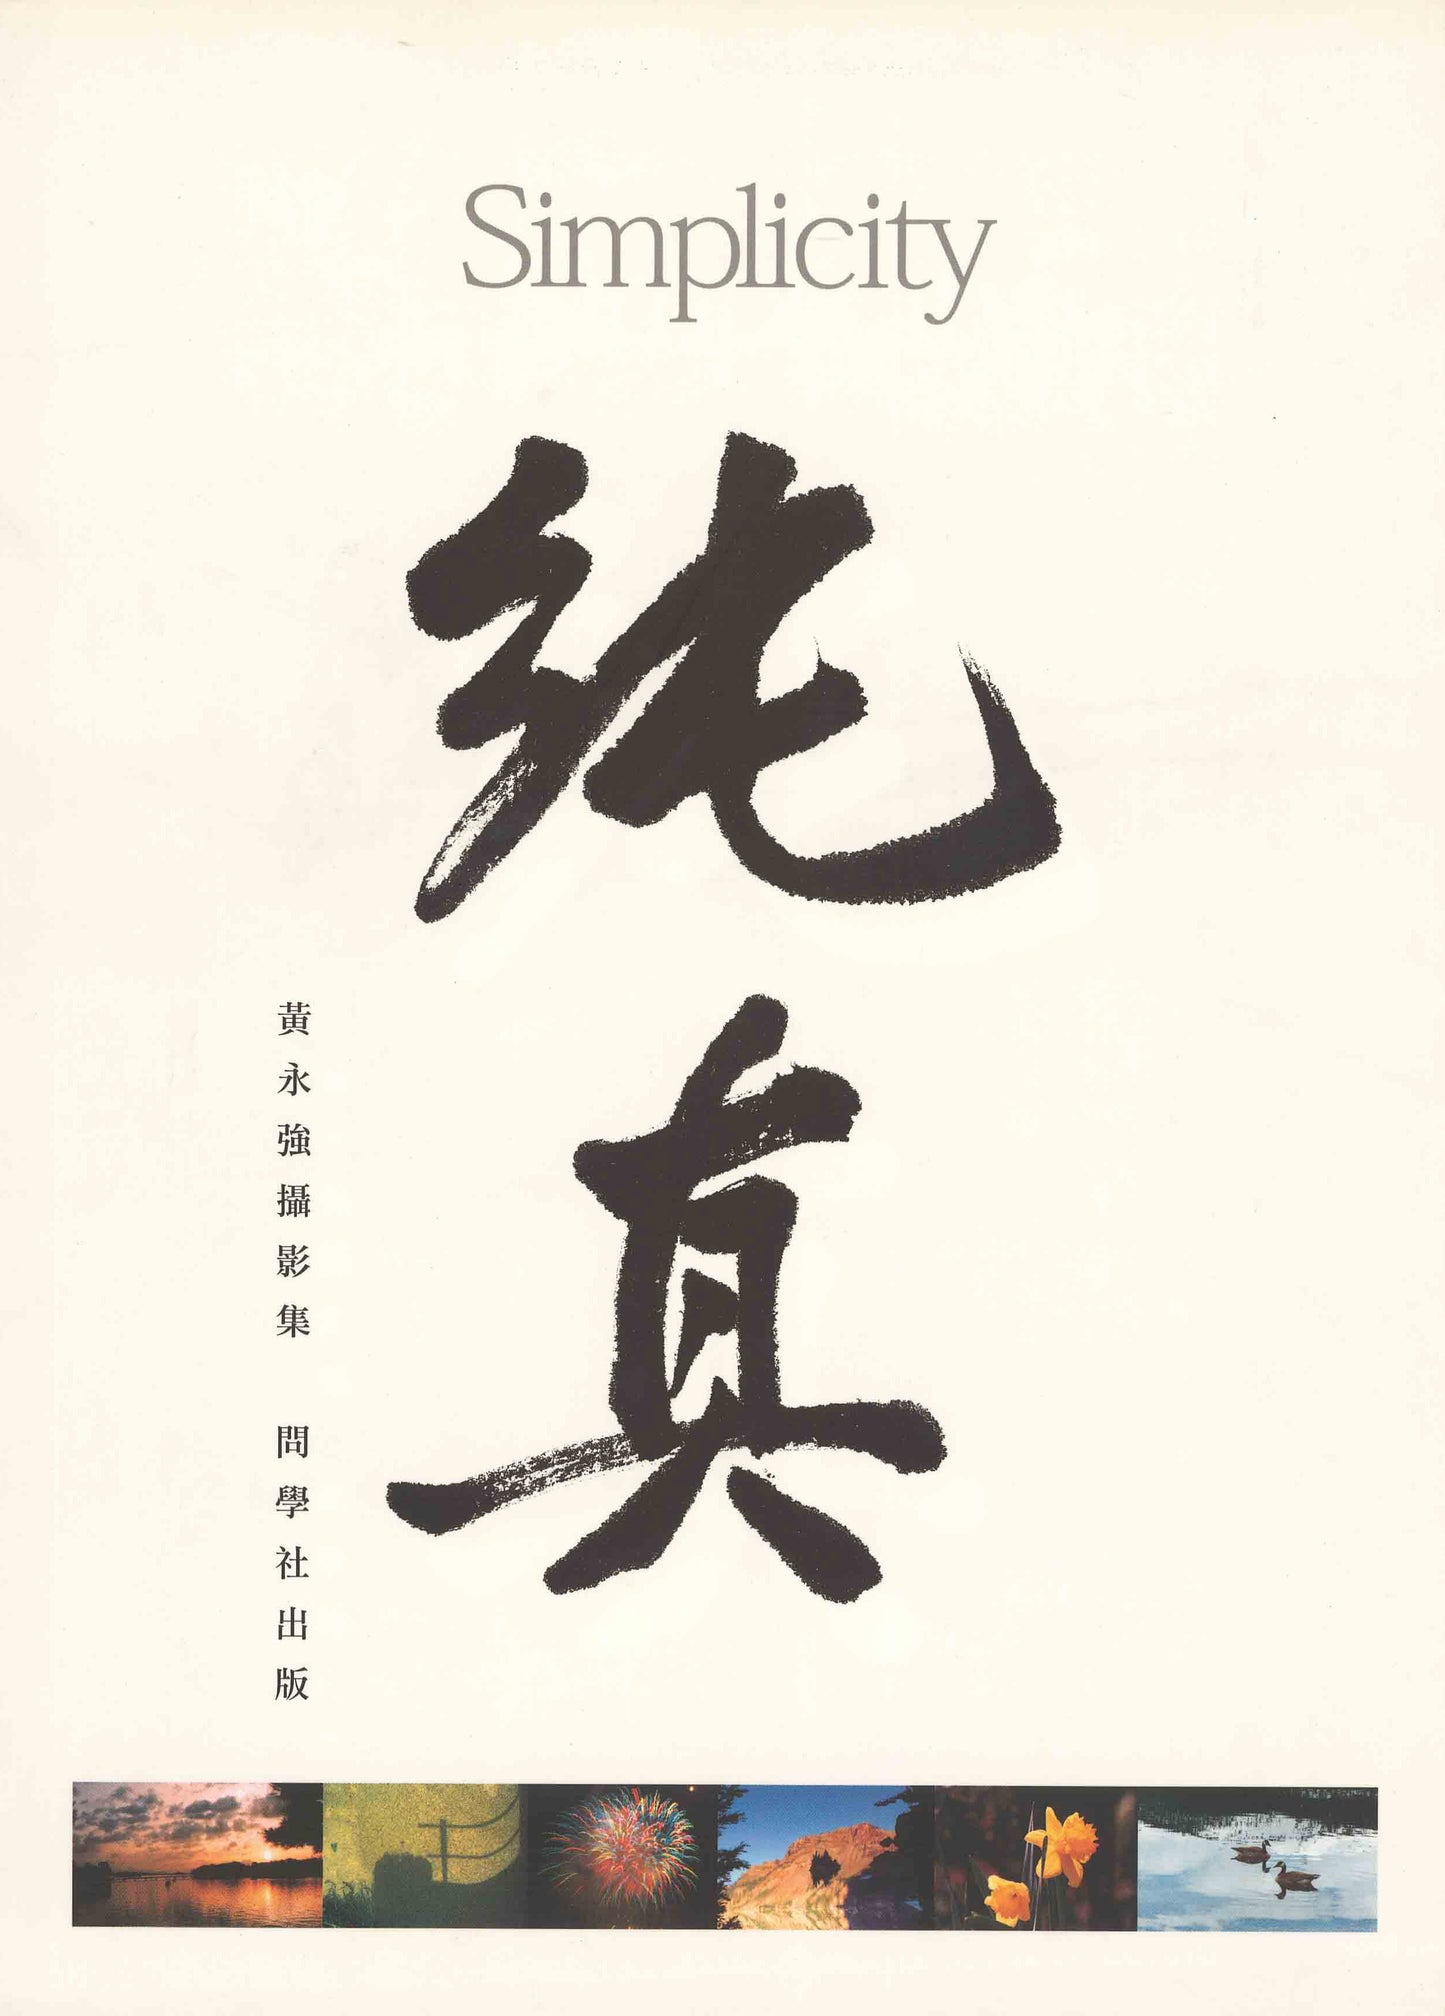 Simplicity
純真
黃永強攝影集 問學社出版